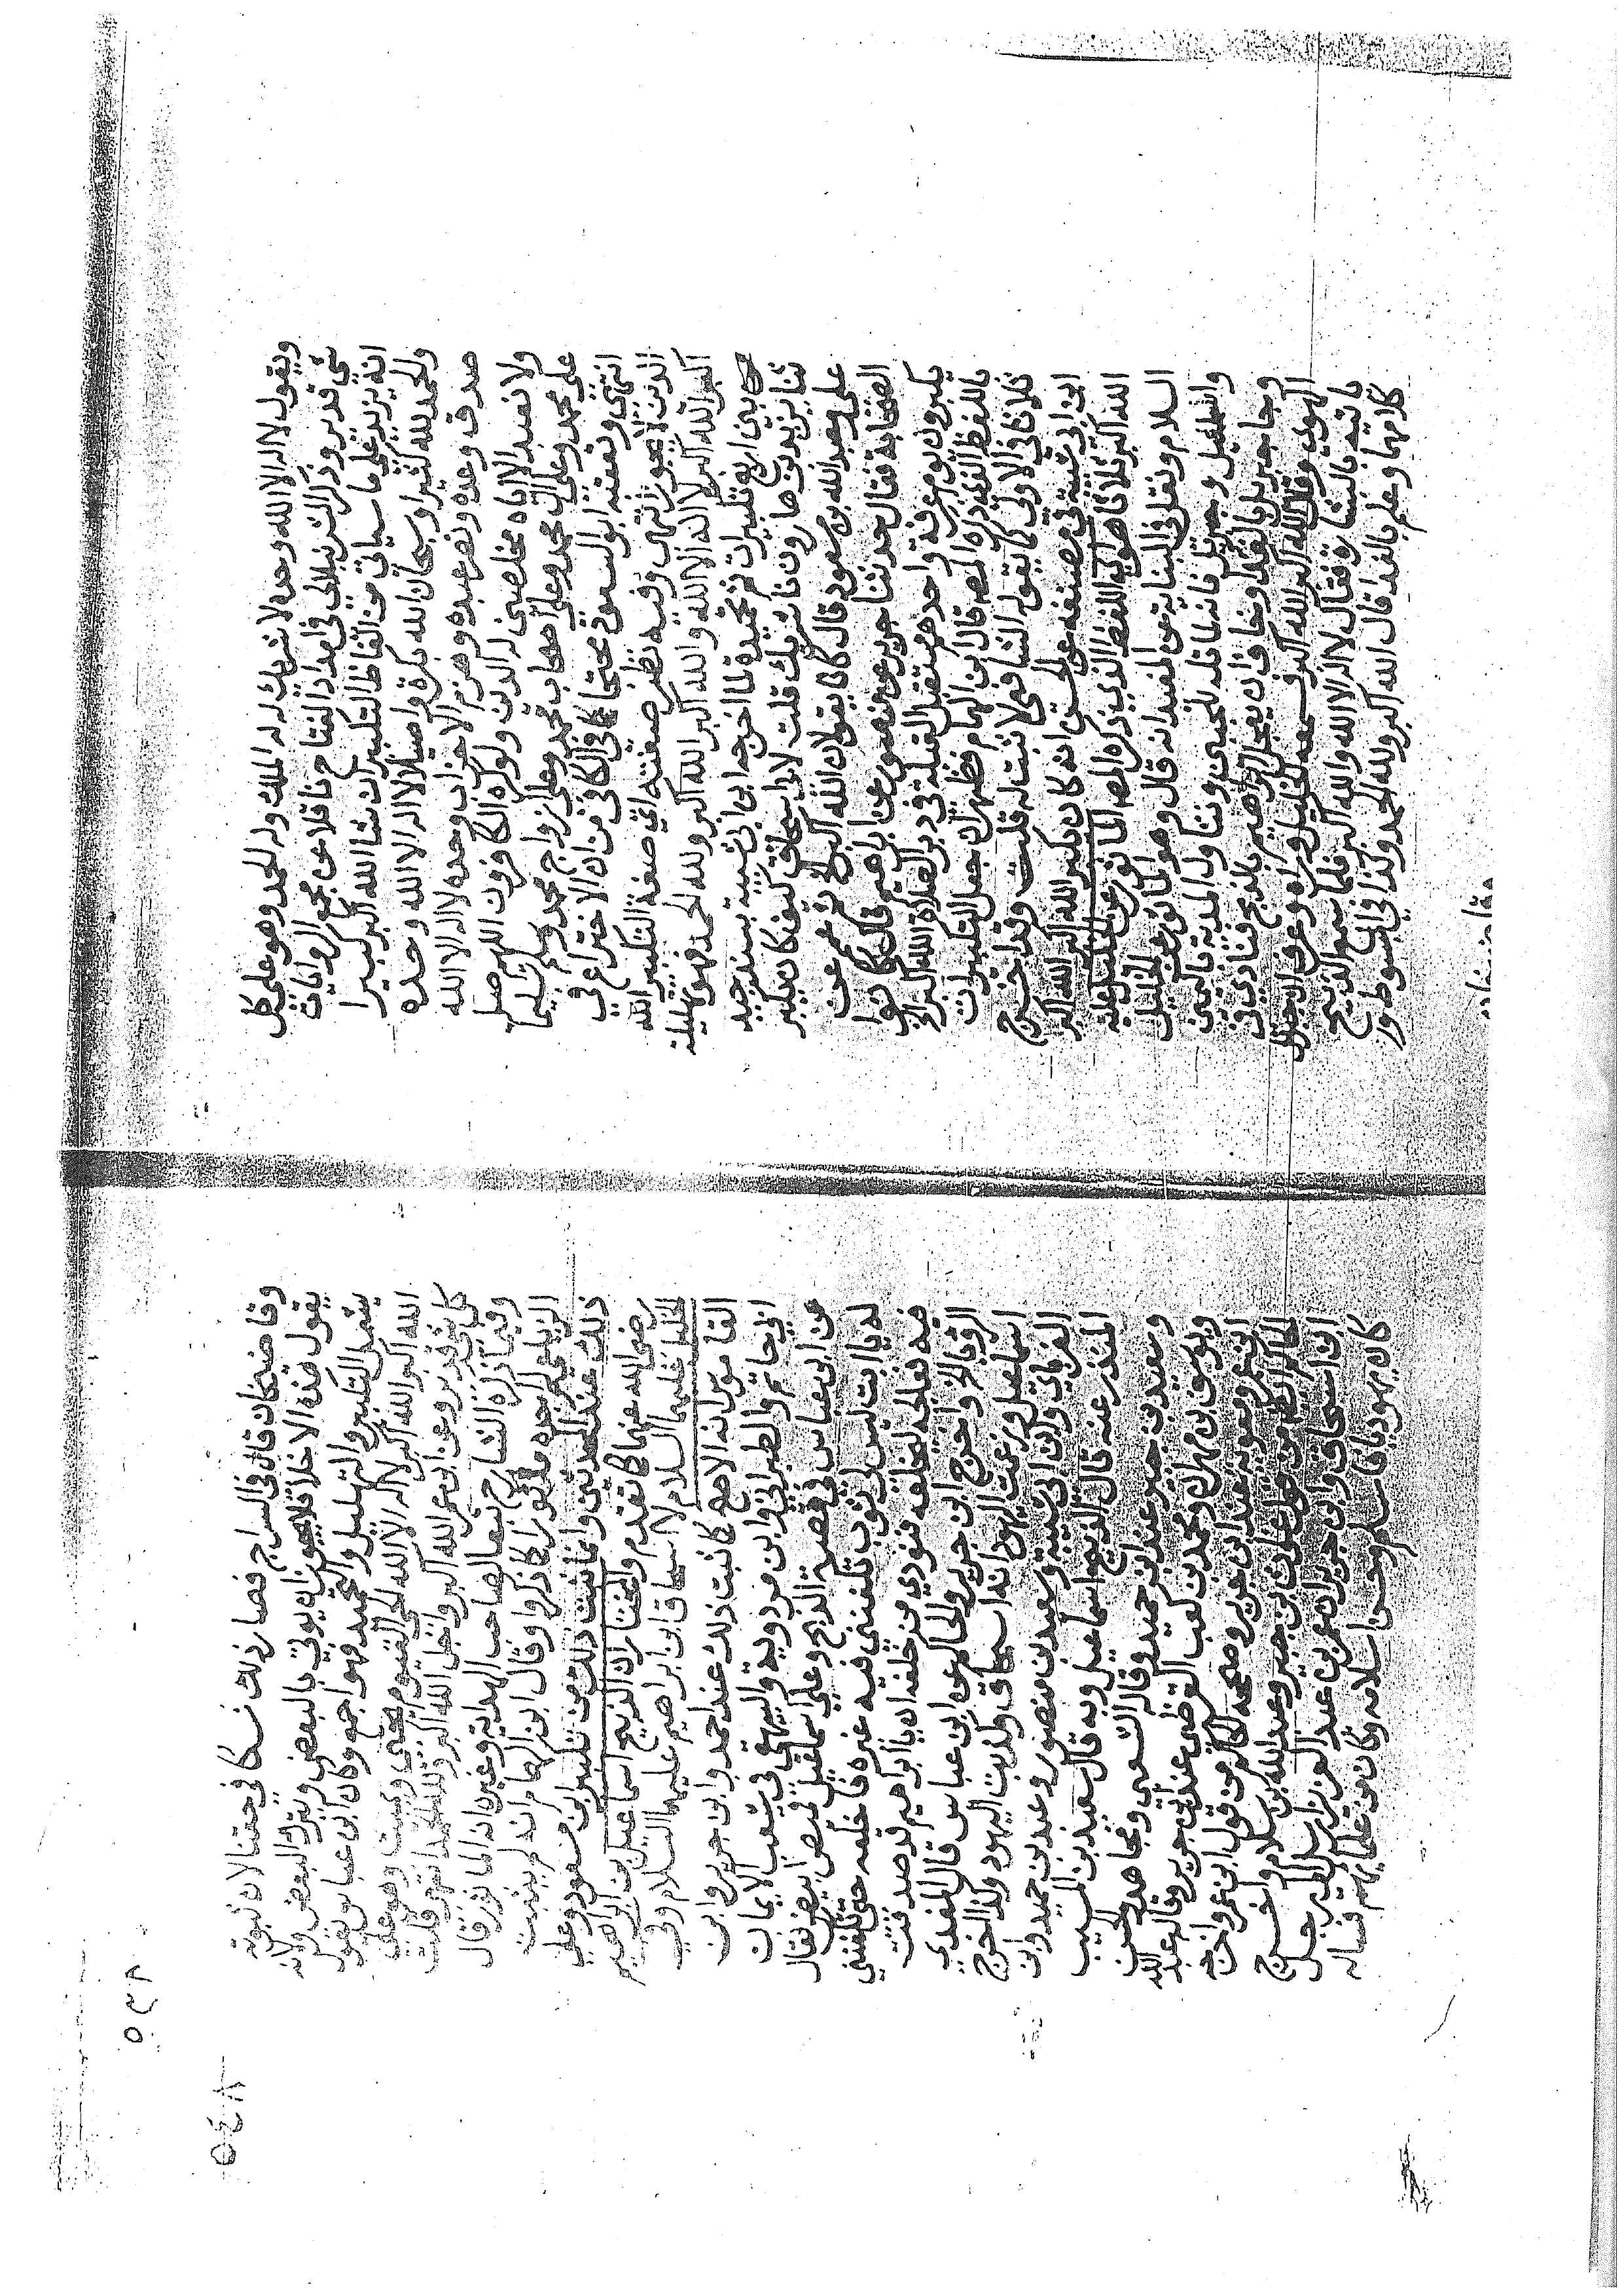 ويقول لا اله الا الله وحده لا شريك له له الملك وله الحمد وهو على كل
شي قدير وذكر الشرنبلالي في امداد الفتاح ناقلا عن مجمع الروايات
انه يزيد على ما سياتي من الفاظ التكبير ان شا الله اكبر كبيرا
والحمد لله كثيرا وسبحان الله بكرة واصيلا لا اله الا الله وحده
صدق وعده ونصر عبده وهزم الاحزاب وحده لا اله الا الله
ولا نعبد الا اياه مخلصين له الدين ولو كره الكافرون اللهم صل
على محمد وعلى آل محمد وعلى اصحاب محمد وعلى ازواج محمد وسلم تسليما
انتهى وتعقبه ابو السعود محتجا بما في الكافي من ان الاختراع في
الدين لا يجوز انتهى وفيه نظر صفته اي صفة التكبير الله
اكبر الله اكبر لا اله الا الله والله اكبر الله اكبر ولله الحمد فهو تهليلة
بين اربع تكبيرات ثم تحميدة لما اخرجه ابن ابي شيبة بسند جيد
ثنا يزيد بن هارون نا شريك قلت لابي اسحاق كيف كان يكبر
علي وعبد الله بن مسعود قال كانا يقولان الله اكبر الخ ثم عمم عن
الصحابة فقال حدثنا جرير عن منصور عن ابراهيم قال كانوا
يكبرون يوم عرفة واحدهم مستقبل القبلة في دبر الصلاة الله اكبر الخ
باللفظ الذي ذكره المص قال ابن الهمام فظهر ان جعل التكبيرات
ثلاثا في الاولى كما يقوله الشافعي لا ثبت له قلت وقد اخرج
ابن ابي شيبة في مصنفه عن الحسن انه كان يكبر الله اكبر الله اكبر
الله اكبر ثلاثا هو اي اللفظ الذي ذكره المص الماثور عن الخليل عليه
السلام ونقل في البناية عن المفيد انه قال وهو الماثور عن الخليل
واسمعيل وجبريل فانه لما تله للجبين وتناول المدية
وجا جبريل بالفدا وخاف ان يعجل ابراهيم بالذبح فنادى في
الهوي وقال الله اكبر الله اكبر فسمعه الخليل وراه وعرف ان جبريل
ياتيه بالبشارة فقال لا اله الا الله والله اكبر فلما سمع الذبيح
كلامهما وعلم بالفدا قال الله اكبر ولله الحمد وكذا في المبسوط
وقاضيخان
وقاضيخان قال في السراج فصار ذلك نسكا في حقنا لان نبوته
يقول هذه الاخلا فلا يجوز ان يوتي بالبعض ويترك البعض ولانه
يشمل التكبير والتهليل والتحميد فهو اجمع وكان ابن عباس يقول
الله اكبر الله اكبر لا اله الا الله الحي القيوم يحيي ويميت وهو على
كل شي قدير وعن ابن عمر الله اكبر واجل الله اكبر ولله الحمد انتهى قلت
وفيما ذكره الشارح تبعا لصاحب الهداية وغيره انه الماثور قال
الزيلعي لم اجده ماثورا كما ذكروا وقال ابن الهمام انه لم يثبت
ذلك عند المحدثين وانما ثبت ذلك من تكبير ابن مسعود وعلي
رضي الله عنهما كما تقدم والمختار ان الذبيح اسماعيل بن ابراهيم
الخليل عليهما السلام لا اسحاق ابن ابراهيم عليهما السلام وفي
القاموس انه الاصح كما ثبت ذلك عند احمد وابن جرير وابن
ابي حاتم والطبراني وابن مردويه والبيهقي في شعب الايمان
عن ابن عباس في قصة الذبح وعلى اسماعيل قميص ابيض فقال
له يا ابت ليس لي ثوب تكفنني فيه غيره فاخلعه حتى تكفنني
فيه فعالجه ليخلعه فنودي من خلفه ان يا ابراهيم قد صدقت
الرؤيا الخ واخرج ابن جرير والحاكم عن ابن عباس قال المفدي
اسمعيل وزعمت اليهود انه اسحاق وكذبت اليهود وكذا اخرج
الفريابي وابن ابي شيبة وسعيد بن منصور وعبد بن حميد وابن
المنذر عنه قال الذبيح اسماعيل وبه قال سعيد بن المسيب
وسعيد بن جبير عند ابن حميد وقاله الشعبي ومجاهد والحسن
ويوسف بن مهران ومحمد بن كعب القرظي عند ابن جرير وقاله عبد الله
ابن عمر ومعوية عند ابن جرير وصححه الحاكم من قول ابن عمر واخرجه
الحاكم ايضا من قول علي بن جبير وعبد الله بن سلام واخرج
ابن اسحاق وابن جرير ان عمر بن عبد العزيز ارسل الى رجل
كان يهوديا فاسلم وحسن اسلامه وكان من علمايهم فساله
٥٤٨